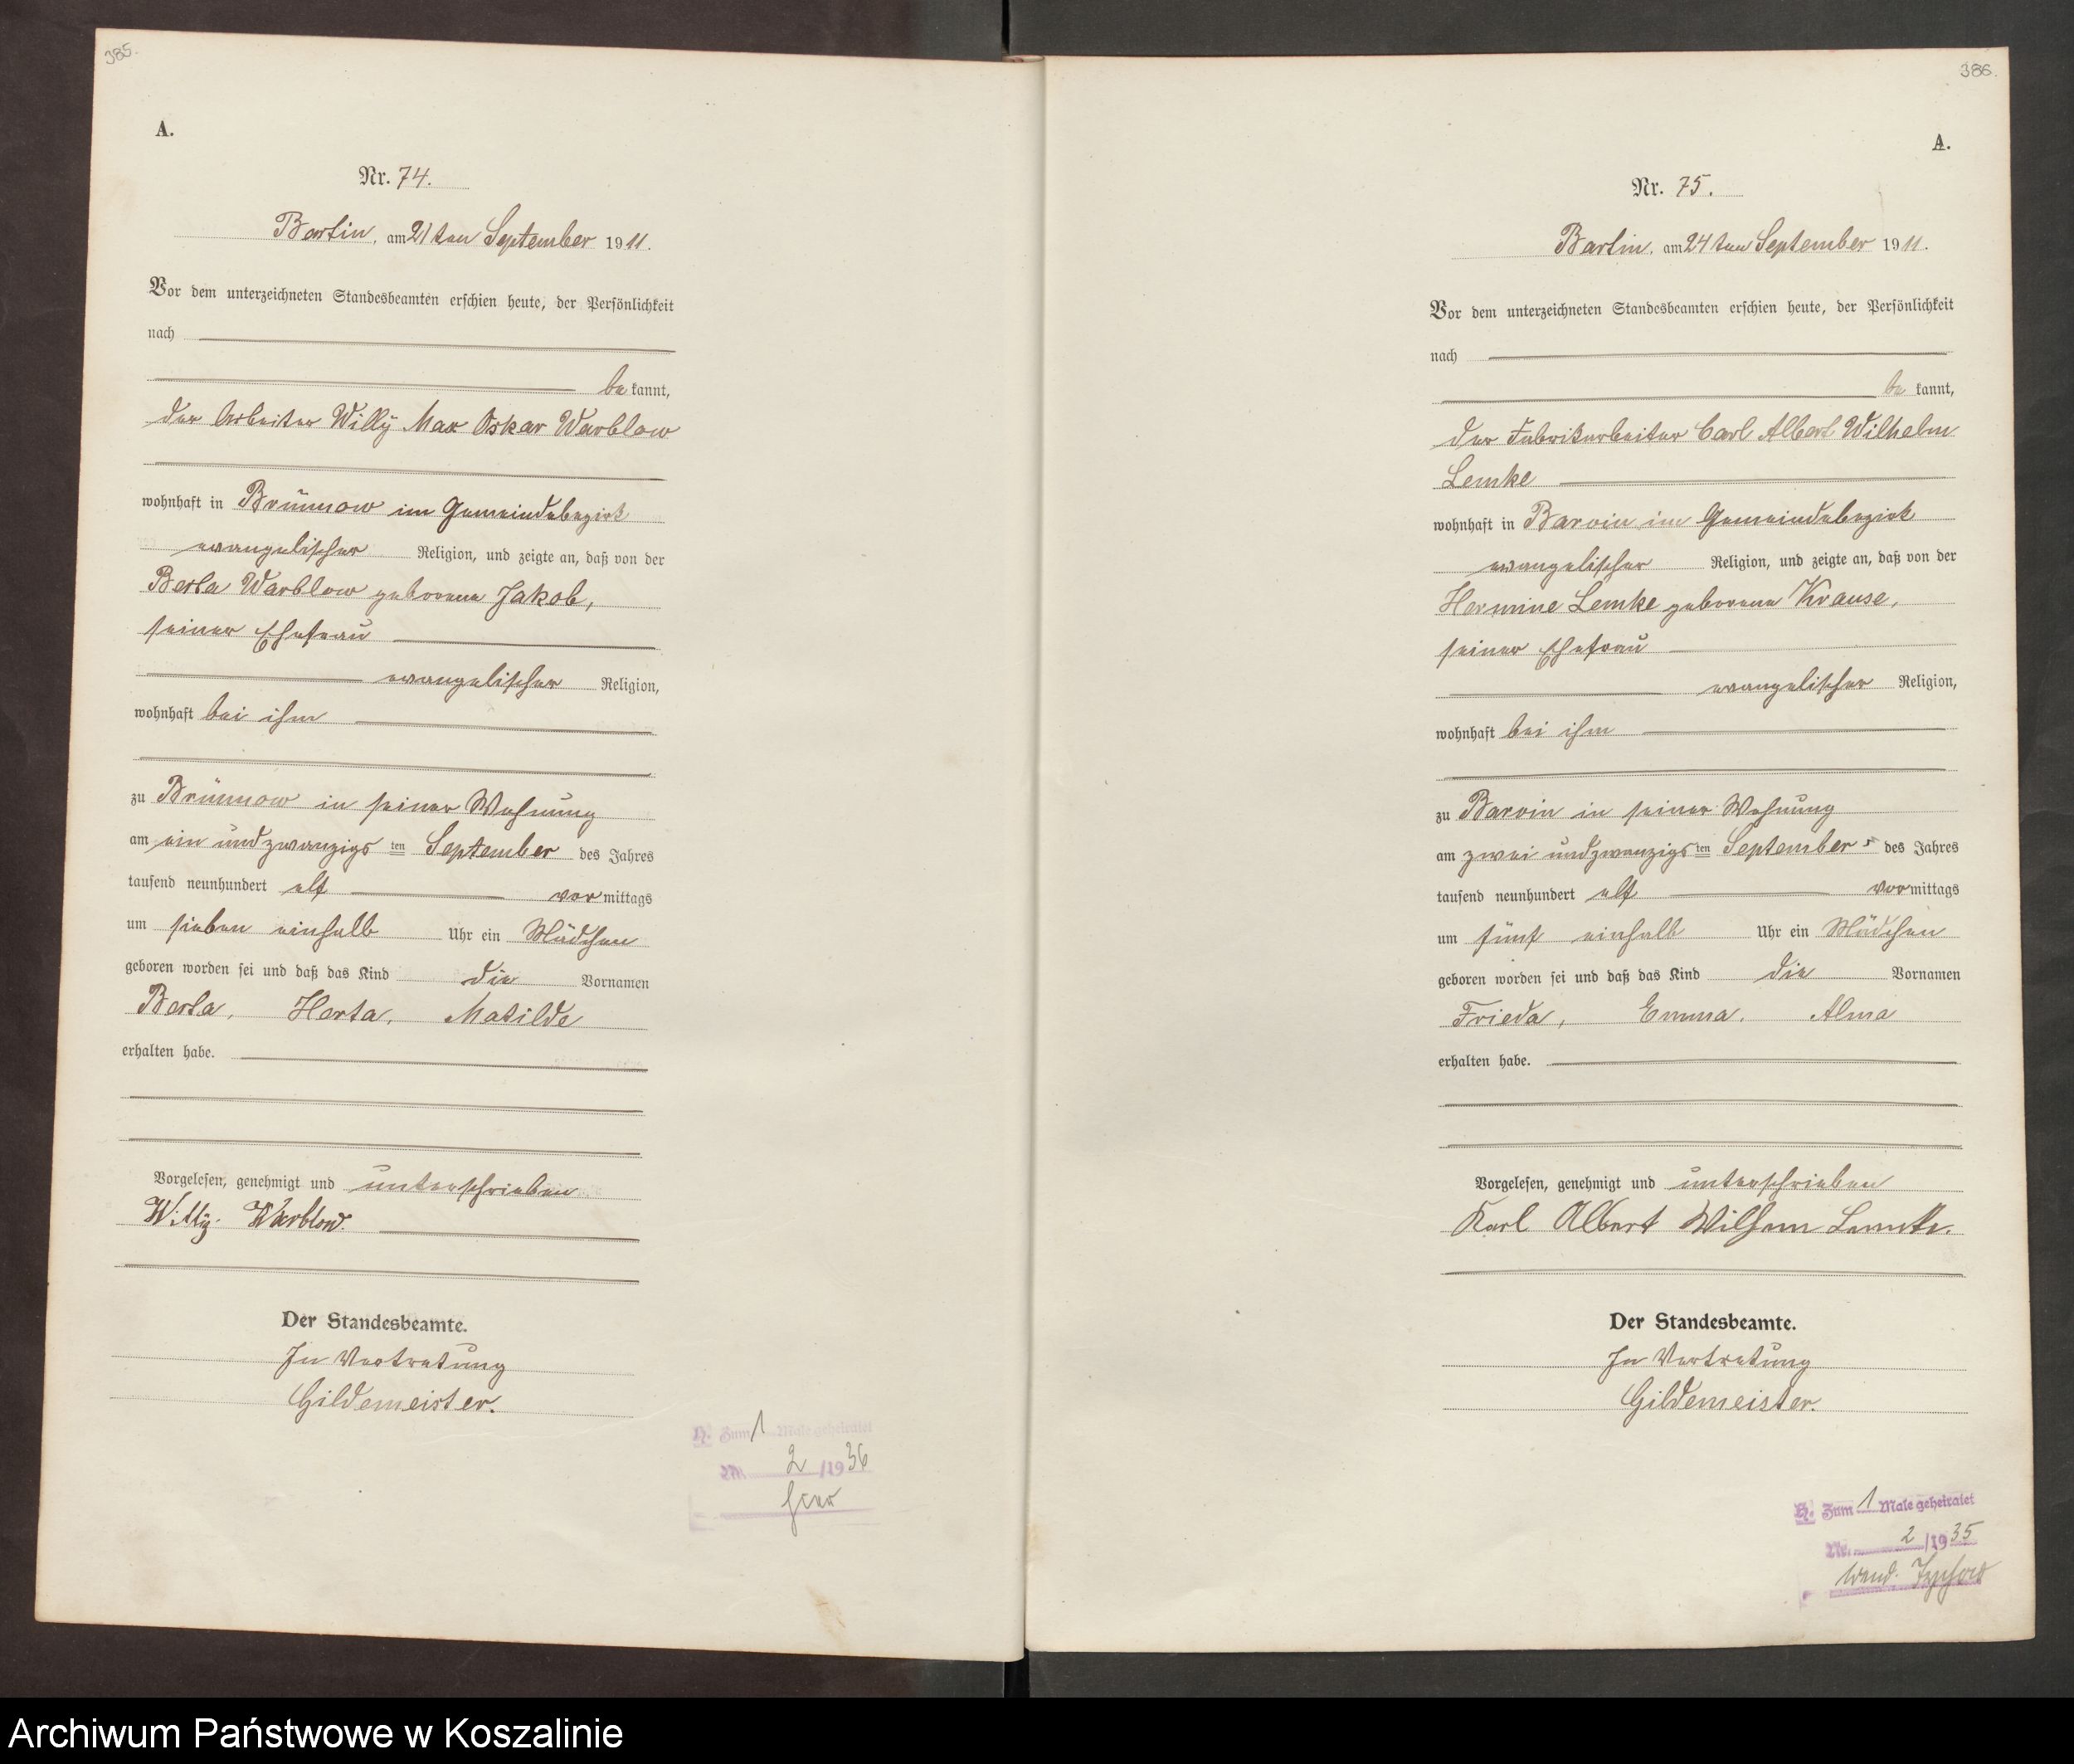 385.
A.
Nr. 74.
Bartin, am 21ten September 1911.
Vor dem unterzeichneten Standesbeamten erschien heute, der Persönlichkeit
nach
bekannt,
der Arbeiter Willy Max Oskar Warblow
wohnhaft in Brünnow im Gemeindebezirk
evangelischer Religion, und zeigte an, daß von der
Berta Warblow geborene Jakob,
seiner Ehefrau
evangelischer Religion,
wohnhaft bei ihm
zu Brünnow in seiner Wohnung
am ein und zwanzigsten September des Jahres
tausend neunhundert elf vormittags
um sieben einhalb Uhr ein Mädchen
geboren worden sei und daß das Kind die Vornamen
Berta, Herta, Matilde
erhalten habe.
Vorgelesen, genehmigt und unterschrieben
Willy Warblow.
Der Standesbeamte.
In Vertretung
Gildemeister.
H. Zum 1 Male geheiratet
Nr. 2/1936
386.
A.
Nr. 75.
Bartin, am 24ten September 1911.
Vor dem unterzeichneten Standesbeamten erschien heute, der Persönlichkeit
nach
bekannt,
der Fabrikarbeiter Carl Albert Wilhelm
Lemke
wohnhaft in Barvin im Gemeindebezirk
evangelischer Religion, und zeigte an, daß von der
Hermine Lemke geborene Krause,
seiner Ehefrau
evangelischer Religion,
wohnhaft bei ihm
zu Barvin in seiner Wohnung
am zwei und zwanzigsten September des Jahres
tausend neunhundert elf vormittags
um fünf einhalb Uhr ein Mädchen
geboren worden sei und daß das Kind die Vornamen
Frieda, Emma, Alma
erhalten habe.
Vorgelesen, genehmigt und unterschrieben
Karl Albert Wilhem Lemke.
Der Standesbeamte.
In Vertretung
Gildemeister.
H. Zum 1 Male geheiratet
Nr. 2/1935
Archiwum Państwowe w Koszalinie